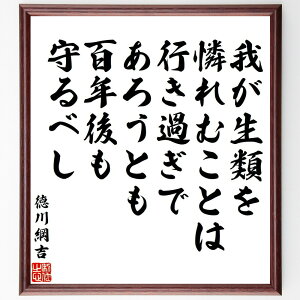 我が生類を
憐れむことは
行き過ぎで
あろうとも
百年後も
守るべし
徳川綱吉